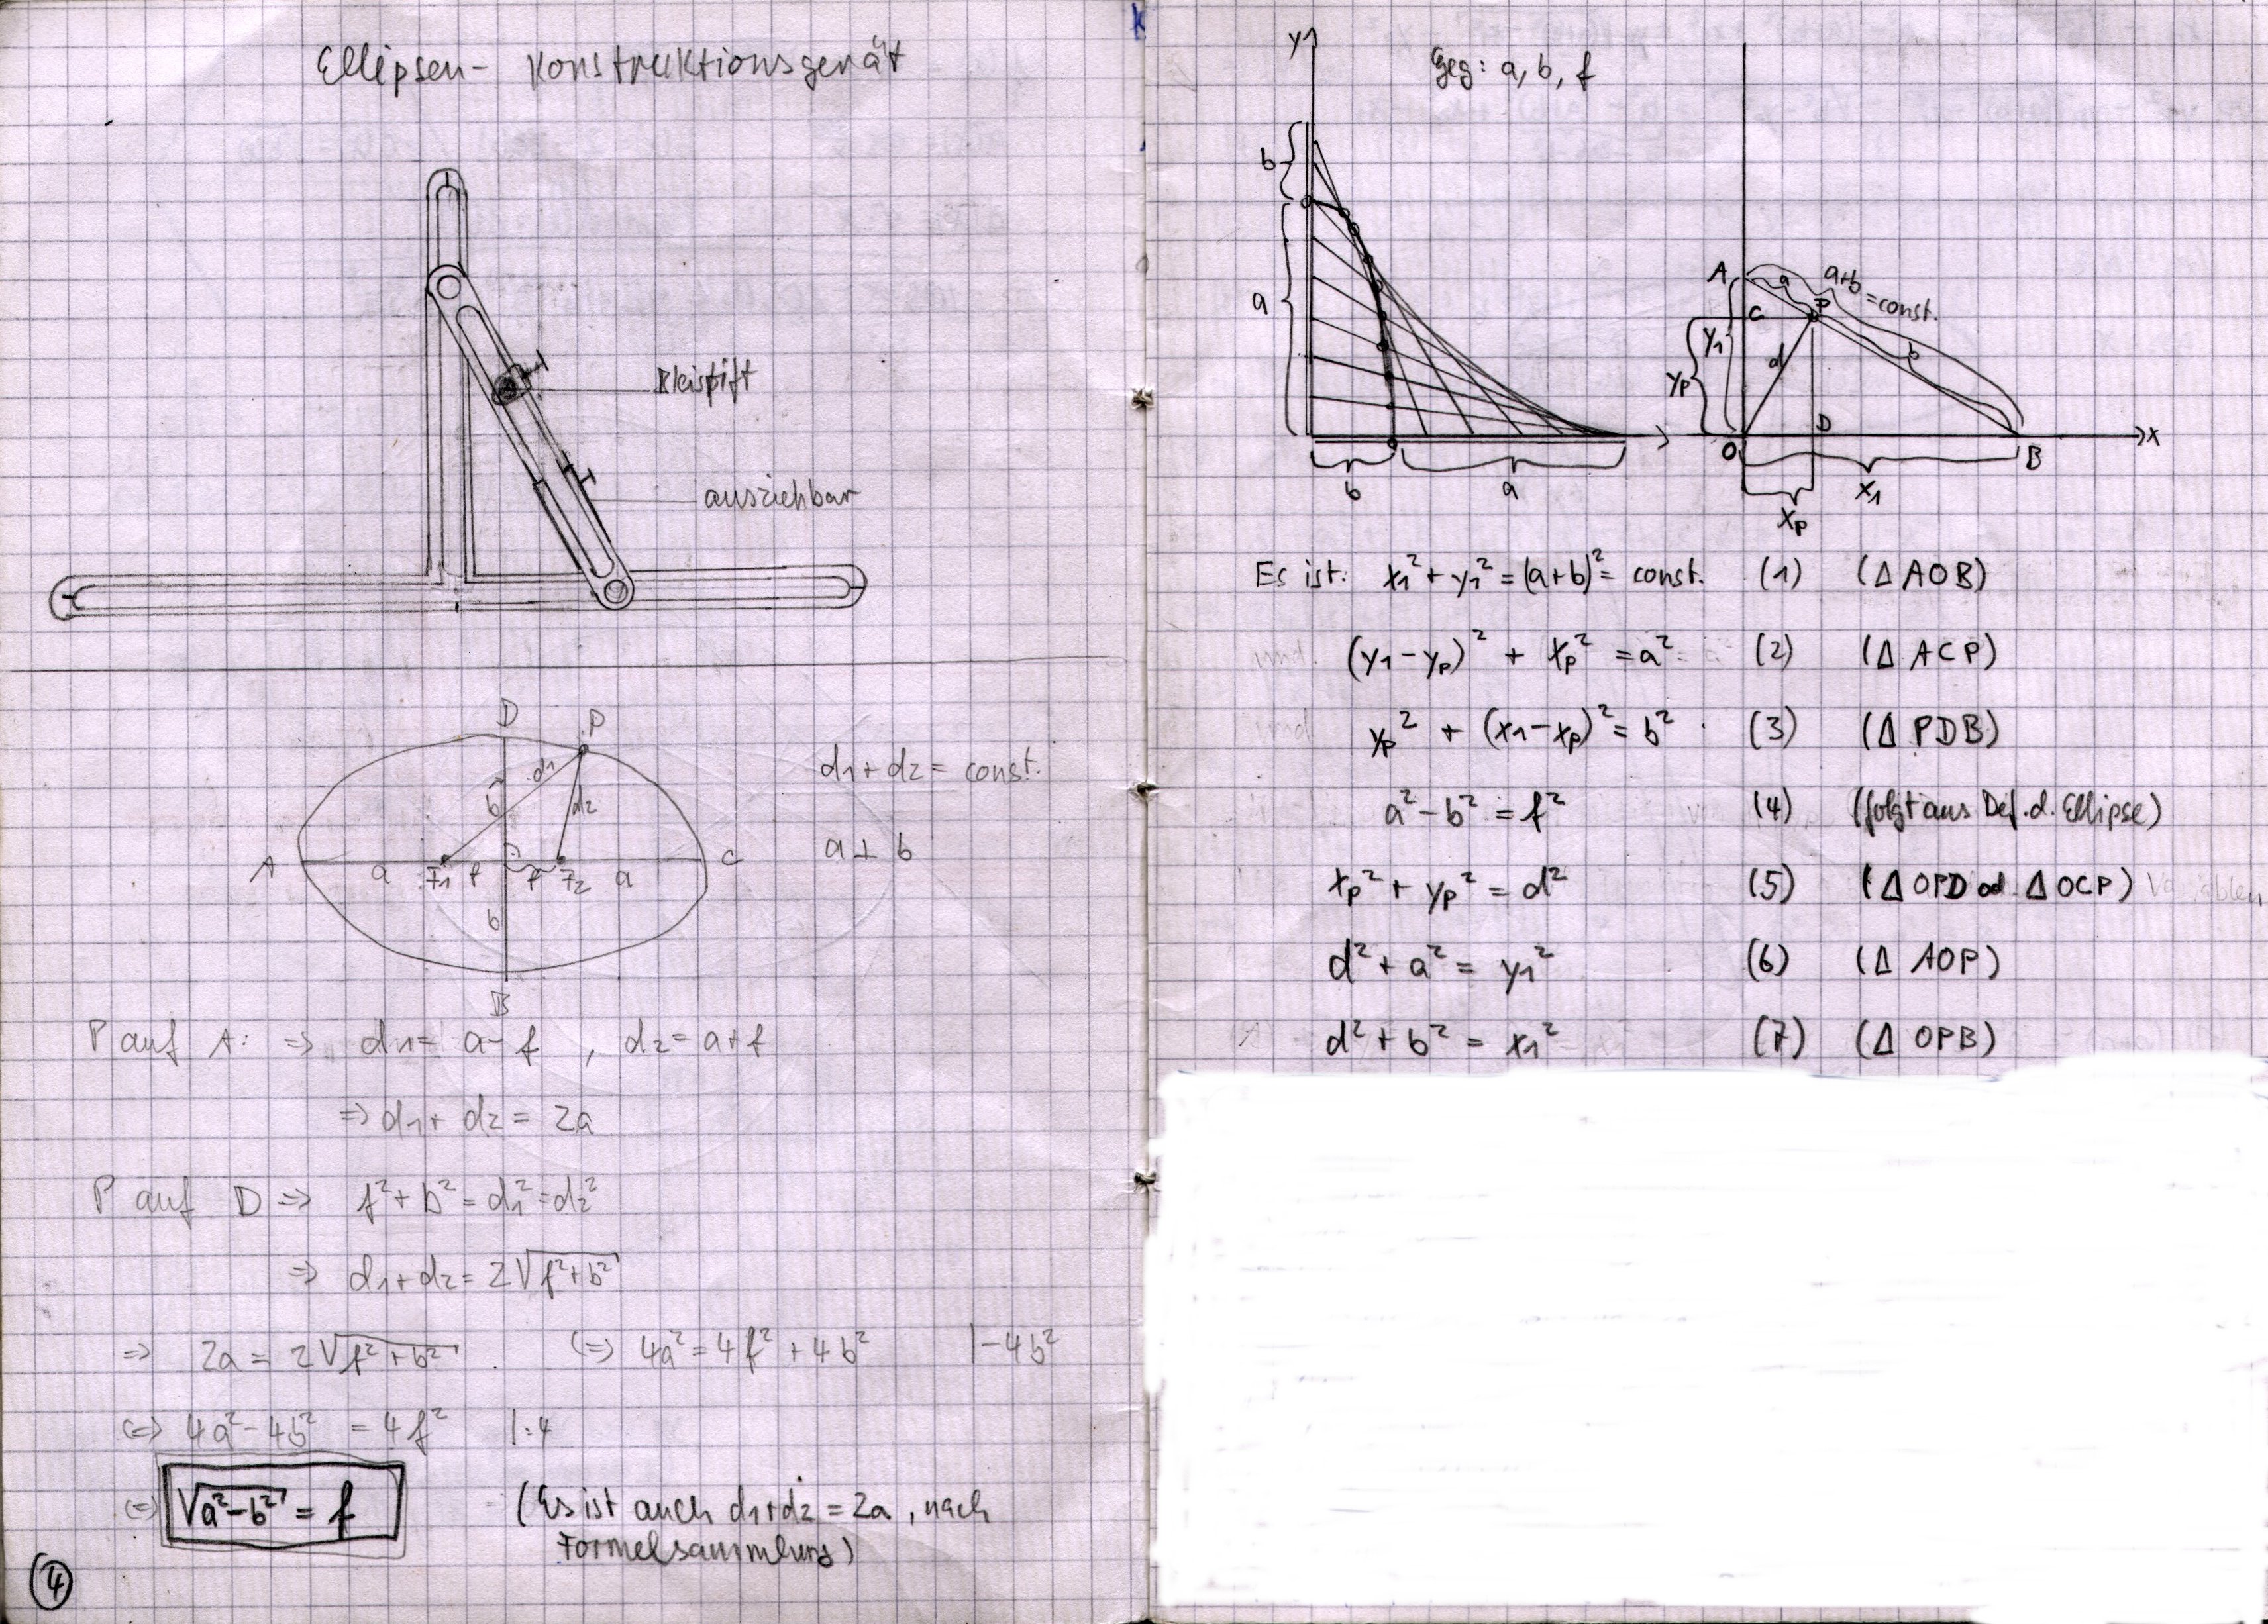 Ellipsen- Konstruktionsgerät
Bleistift
ausziehbar
D P
d1
b d2
d1+d2 = const.
A a F1 f f F2 a C
a ⊥ b
b
B
P auf A: => d1= a-f , d2=a+f
=> d1+ d2 = 2a
P auf D => f²+b²=d1²=d2²
=> d1+d2=2√f²+b²
=> 2a = 2√f²+b² <=> 4a²=4f²+4b² |-4b²
<=> 4a²-4b² = 4f² |:4
<=> √a²-b² = f (Es ist auch d1+d2=2a, nach
Formelsammlung)
4
y
Geg: a, b, f
b
a
b a
A a a+b =const.
C P
y1 d b
yp
D
O B x
x1
xp
Es ist: x1²+y1²=(a+b)²= const. (1) (Δ AOB)
und (y1-yp)² + xp² =a² (2) (Δ ACP)
und yp² + (x1-xp)²=b² (3) (Δ PDB)
a²-b²=f² (4) (folgt aus Def. d. Ellipse)
xp²+yp²=d² (5) (Δ OPD od. Δ OCP)
d²+a²= y1² (6) (Δ AOP)
d²+b²= x1² (7) (Δ OPB)